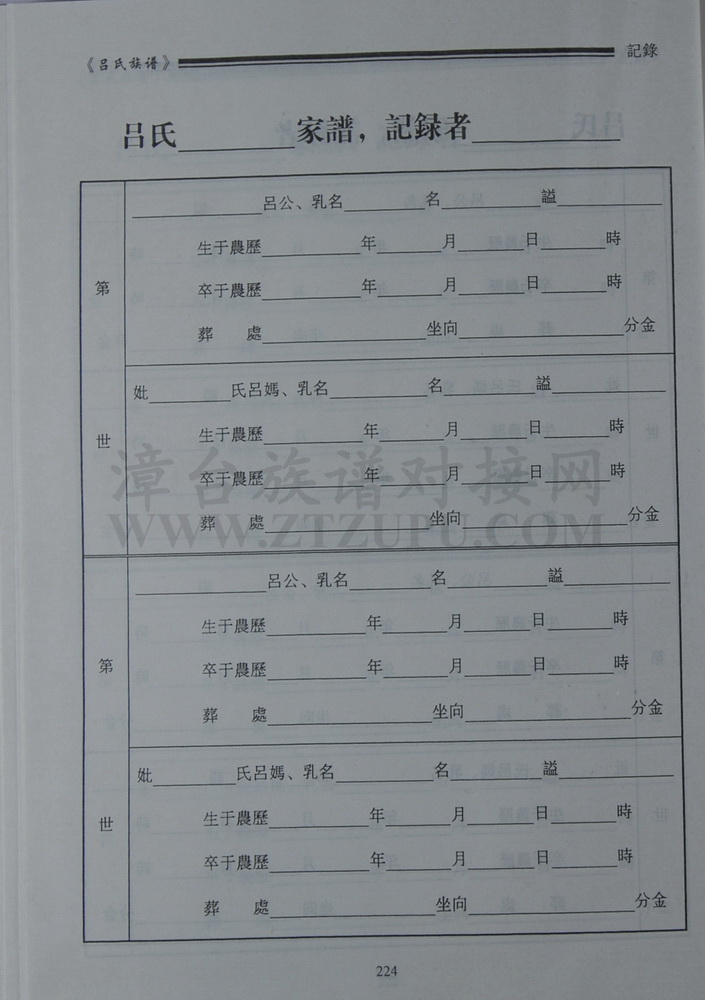 《吕氏族谱》 記錄
吕氏__________家譜，記録者__________
第 世
__________呂公、乳名________名________謚________
生于農歷________年______月______日______時
卒于農歷________年______月______日______時
葬 處______________坐向______________分金
妣________氏呂媽、乳名________名________謚________
生于農歷________年______月______日______時
卒于農歷________年______月______日______時
葬 處______________坐向______________分金
第 世
__________呂公、乳名________名________謚________
生于農歷________年______月______日______時
卒于農歷________年______月______日______時
葬 處______________坐向______________分金
妣________氏呂媽、乳名________名________謚________
生于農歷________年______月______日______時
卒于農歷________年______月______日______時
葬 處______________坐向______________分金
224
漳台族谱对接网
WWW.ZTZUPU.COM